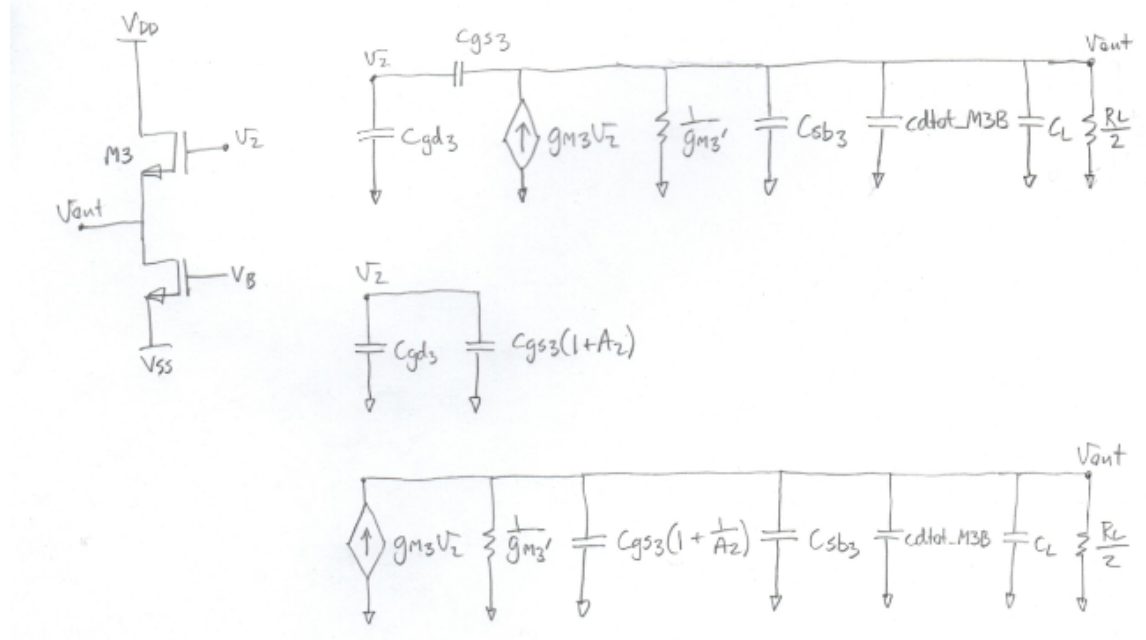 VDD
M3
V2
Vout
VB
VSS
V2
Cgs3
Vout
Cgd3
gM3V2
1/gM3'
Csb3
cdtot_M3B
CL
RL/2
V2
Cgd3
Cgs3(1+A2)
Vout
gM3V2
1/gM3'
Cgs3(1+1/A2)
Csb3
cdtot_M3B
CL
RL/2